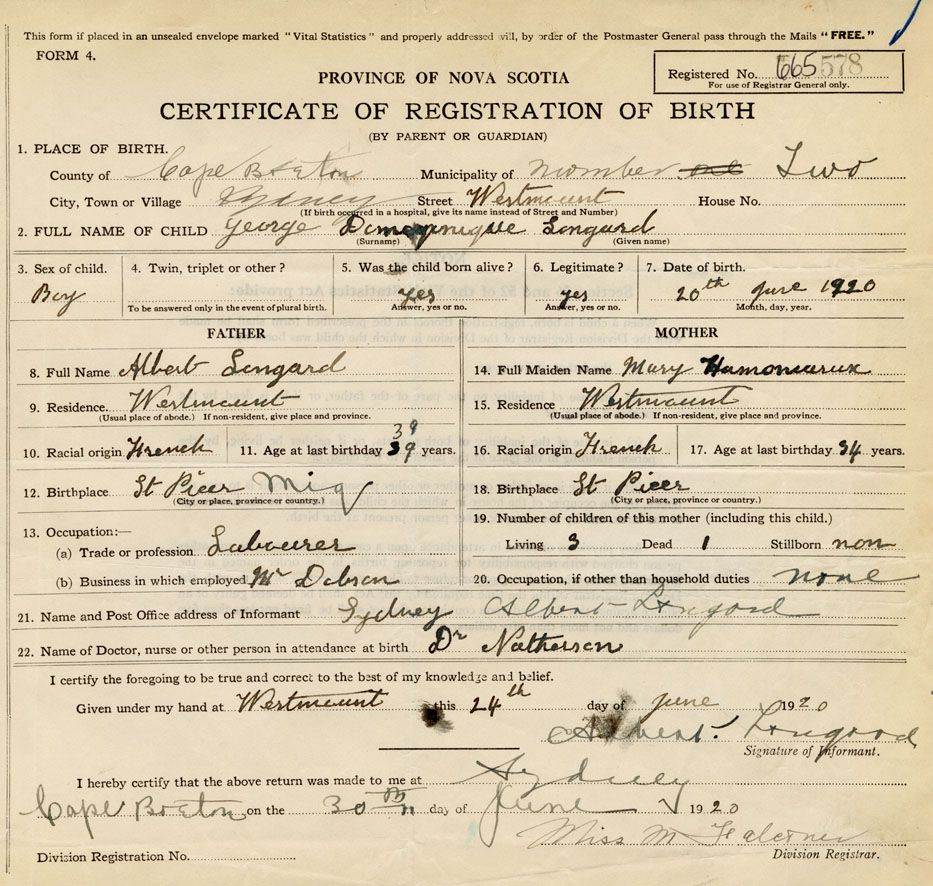 This form if placed in an unsealed envelope marked "Vital Statistics" and properly addressed will, by order of the Postmaster General pass through the Mails "FREE."
FORM 4.
PROVINCE OF NOVA SCOTIA
Registered No. 665 578
For use of Registrar General only.
CERTIFICATE OF REGISTRATION OF BIRTH
(BY PARENT OR GUARDIAN)
1. PLACE OF BIRTH.
County of Cape Breton Municipality of number Two
City, Town or Village Street Westmount House No.
(If birth occurred in a hospital, give its name instead of Street and Number)
2. FULL NAME OF CHILD George Longard
(Surname) (Given name)
3. Sex of child. 4. Twin, triplet or other? 5. Was the child born alive? 6. Legitimate? 7. Date of birth.
Boy yes yes 20th June 1920
To be answered only in the event of plural birth. Answer, yes or no. Answer, yes or no. Month, day, year.
FATHER MOTHER
8. Full Name Albert Longard 14. Full Maiden Name Mary
9. Residence. Westmount 15. Residence Westmount
(Usual place of abode.) If non-resident, give place and province. (Usual place of abode.) If non-resident, give place and province.
39
10. Racial origin French 11. Age at last birthday 39 years. 16. Racial origin French 17. Age at last birthday 34 years.
12. Birthplace St Pieer Miq 18. Birthplace St Pieer
(City or place, province or country.) (City or place, province or country.)
19. Number of children of this mother (including this child.)
13. Occupation:—
(a) Trade or profession Labourer Living 3 Dead 1 Stillborn non
(b) Business in which employed Mr Dobson 20. Occupation, if other than household duties none
21. Name and Post Office address of Informant Sydney Albert Longard
22. Name of Doctor, nurse or other person in attendance at birth Dr Natherson
I certify the foregoing to be true and correct to the best of my knowledge and belief.
Given under my hand at Westmount this 24th day of June 1920
Albert Longard
Signature of Informant.
I hereby certify that the above return was made to me at Sydney
Cape Breton on the 30 th day of June 1920
Miss M Falconer
Division Registration No. Division Registrar.